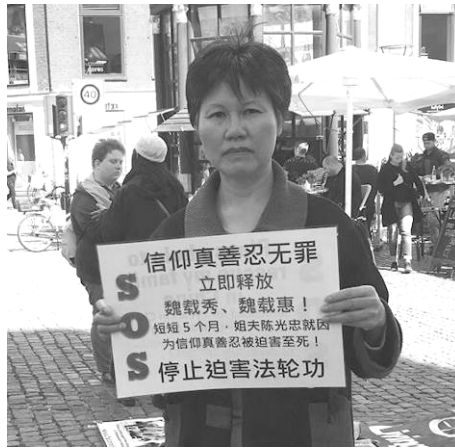 SOS
信仰真善忍无罪
立即释放
魏载秀、魏载惠！
短短5个月，姐夫陈光忠就因
为信仰真善忍被迫害至死！
停止迫害法轮功
40